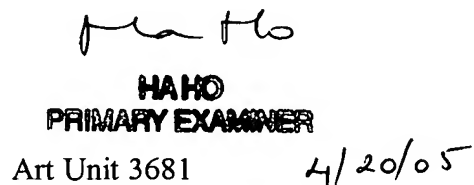 Ha Ho
HA HO
PRIMARY EXAMINER
Art Unit 3681 4/20/05